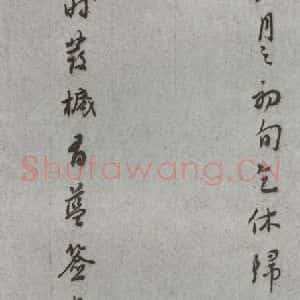 月之初旬乞休歸
時蓻橶有蕓簽
Shufawang.CN